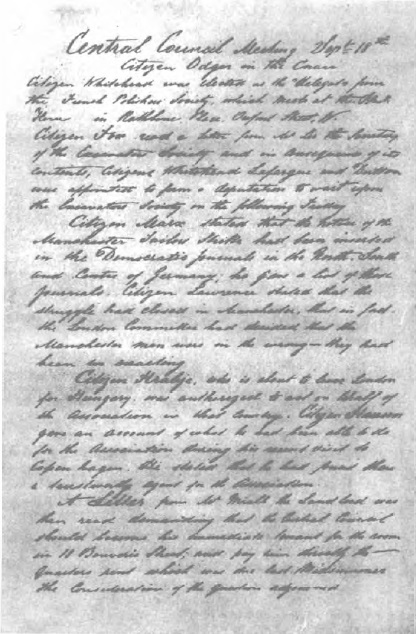 Central Council Meeting Sept. 18th
Citizen Odger in the Chair
Citizen Whitehead was elected as the delegate from
the French Polishers Society, which meets at the Black
Horse in Rathbone Place Oxford Street, W.
Citizen Fox read a letter from Mr Lee the Secretary
of the Excavators Society and in consequence of its
contents, Citizens Whitehead Lafargue and Dutton
were appointed to form a deputation to wait upon
the Excavators Society on the following Friday
Citizen Marx stated that the notice of the
Manchester Tailors Strike had been inserted
in the Democratic Journals in the North, South
and Centre of Germany, he gave a list of those
Journals. Citizen Lawrence stated that the
struggle had closed in Manchester, that in fact
the London Committee had decided that the
Manchester men were in the wrong — they had
been too exacting
Citizen, who is about to leave London
for Hungary, was authorized to act on behalf of
the Association in that country. Citizen Hansen
gave an account of what he had been able to do
for the Association during his recent visit to
Copenhagen. He stated that he had found there
a trustworthy agent for the Association
A Letter from Mr Miall the Landlord was
then read demanding that the Central Council
should become his immediate tenant for the room
in 18 Bouverie Street, and pay him directly the —
Quarters rent which was due last Midsummer
the Consideration of the question adjourned